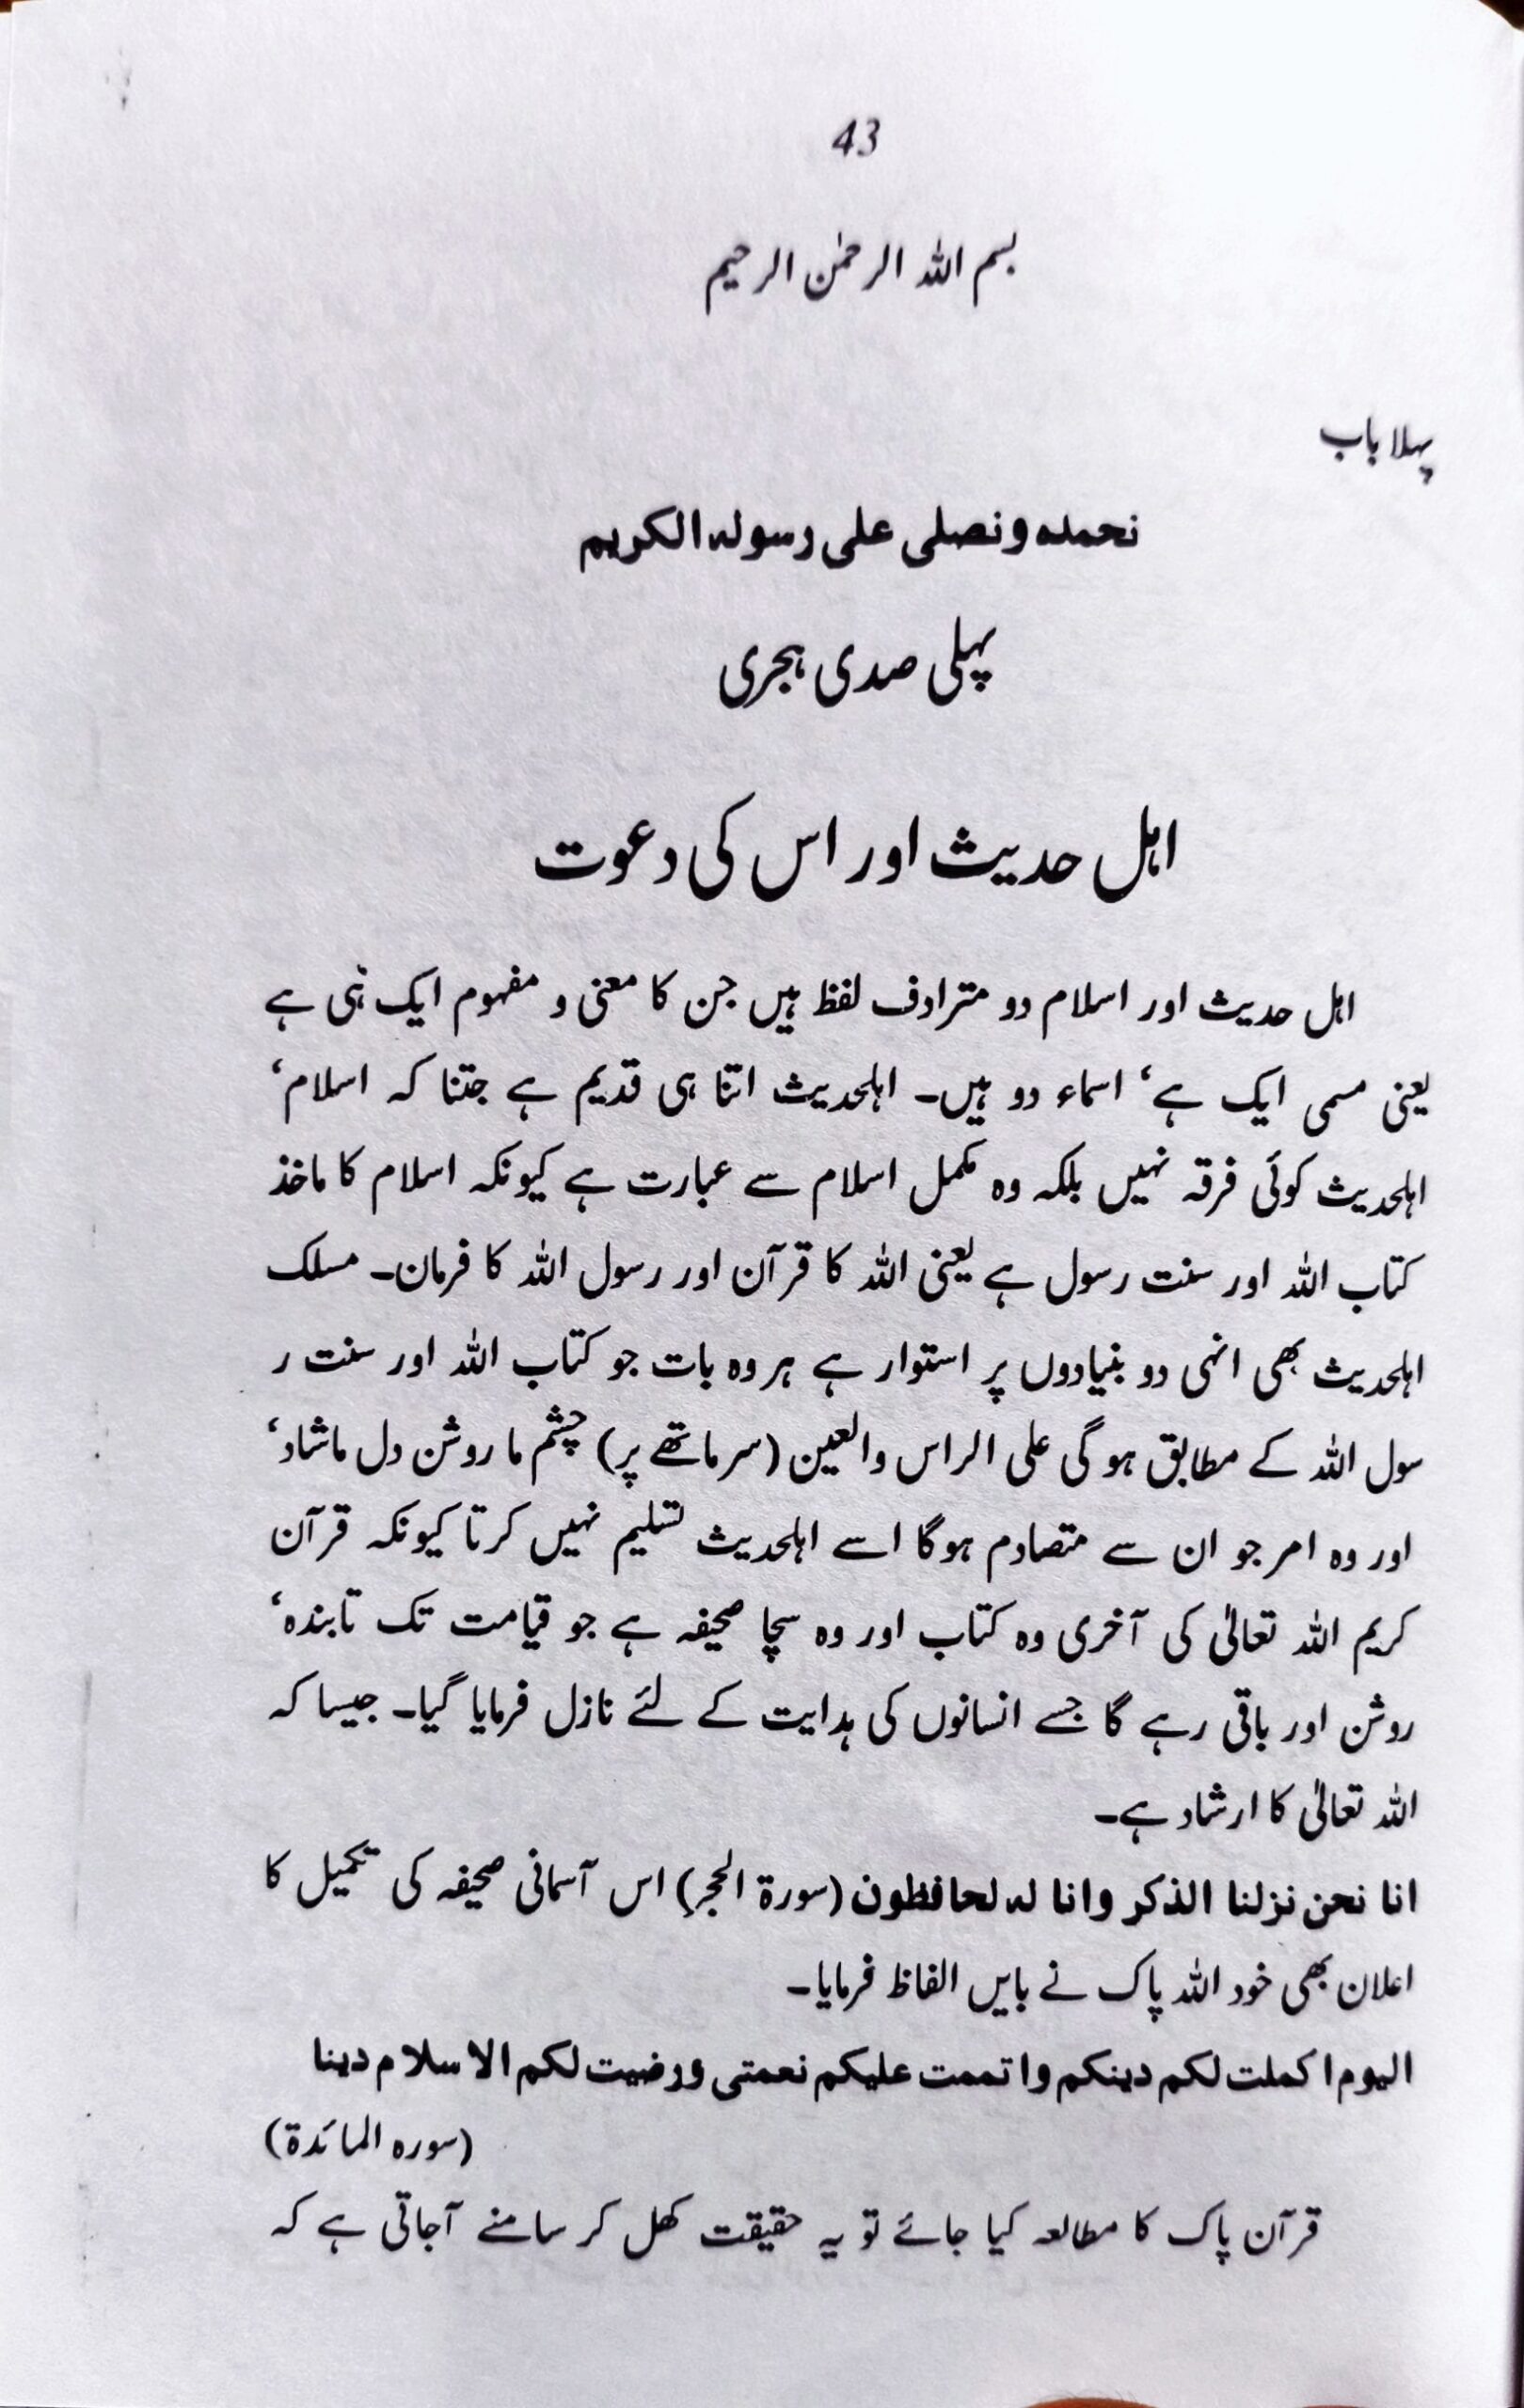 43
بسم اللہ الرحمٰن الرحیم
پہلا باب
نحمدہ ونصلی علی رسولہ الکریم
پہلی صدی ہجری
اہل حدیث اور اس کی دعوت
اہل حدیث اور اسلام دو مترادف لفظ ہیں جن کا معنی و مفہوم ایک ہی ہے
یعنی مسمی ایک ہے، اسماء دو ہیں۔ اہلحدیث اتنا ہی قدیم ہے جتنا کہ اسلام،
اہلحدیث کوئی فرقہ نہیں بلکہ وہ مکمل اسلام سے عبارت ہے کیونکہ اسلام کا ماخذ
کتاب اللہ اور سنت رسول ہے یعنی اللہ کا قرآن اور رسول اللہ کا فرمان۔ مسلک
اہلحدیث بھی انہی دو بنیادوں پر استوار ہے ہر وہ بات جو کتاب اللہ اور سنت ر
سول اللہ کے مطابق ہوگی علی الراس والعین (سر ماتھے پر) چشم ما روشن دل ماشاد،
اور وہ امر جو ان سے متصادم ہوگا اسے اہلحدیث تسلیم نہیں کرتا کیونکہ قرآن
کریم اللہ تعالیٰ کی آخری وہ کتاب اور وہ سچا صحیفہ ہے جو قیامت تک تابندہ،
روشن اور باقی رہے گا جسے انسانوں کی ہدایت کے لئے نازل فرمایا گیا۔ جیسا کہ
اللہ تعالیٰ کا ارشاد ہے۔
انا نحن نزلنا الذکر وانا لہ لحافظون (سورۃ الحجر) اس آسمانی صحیفہ کی تکمیل کا
اعلان بھی خود اللہ پاک نے بایں الفاظ فرمایا۔
الیوم اکملت لکم دینکم واتممت علیکم نعمتی ورضیت لکم الاسلام دینا
(سورہ المائدۃ)
قرآن پاک کا مطالعہ کیا جائے تو یہ حقیقت کھل کر سامنے آجاتی ہے کہ